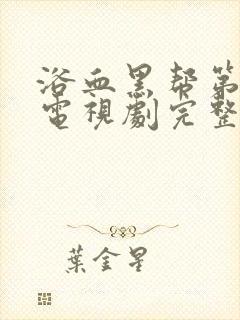 浴血黑帮第
電視劇完整
葉金星